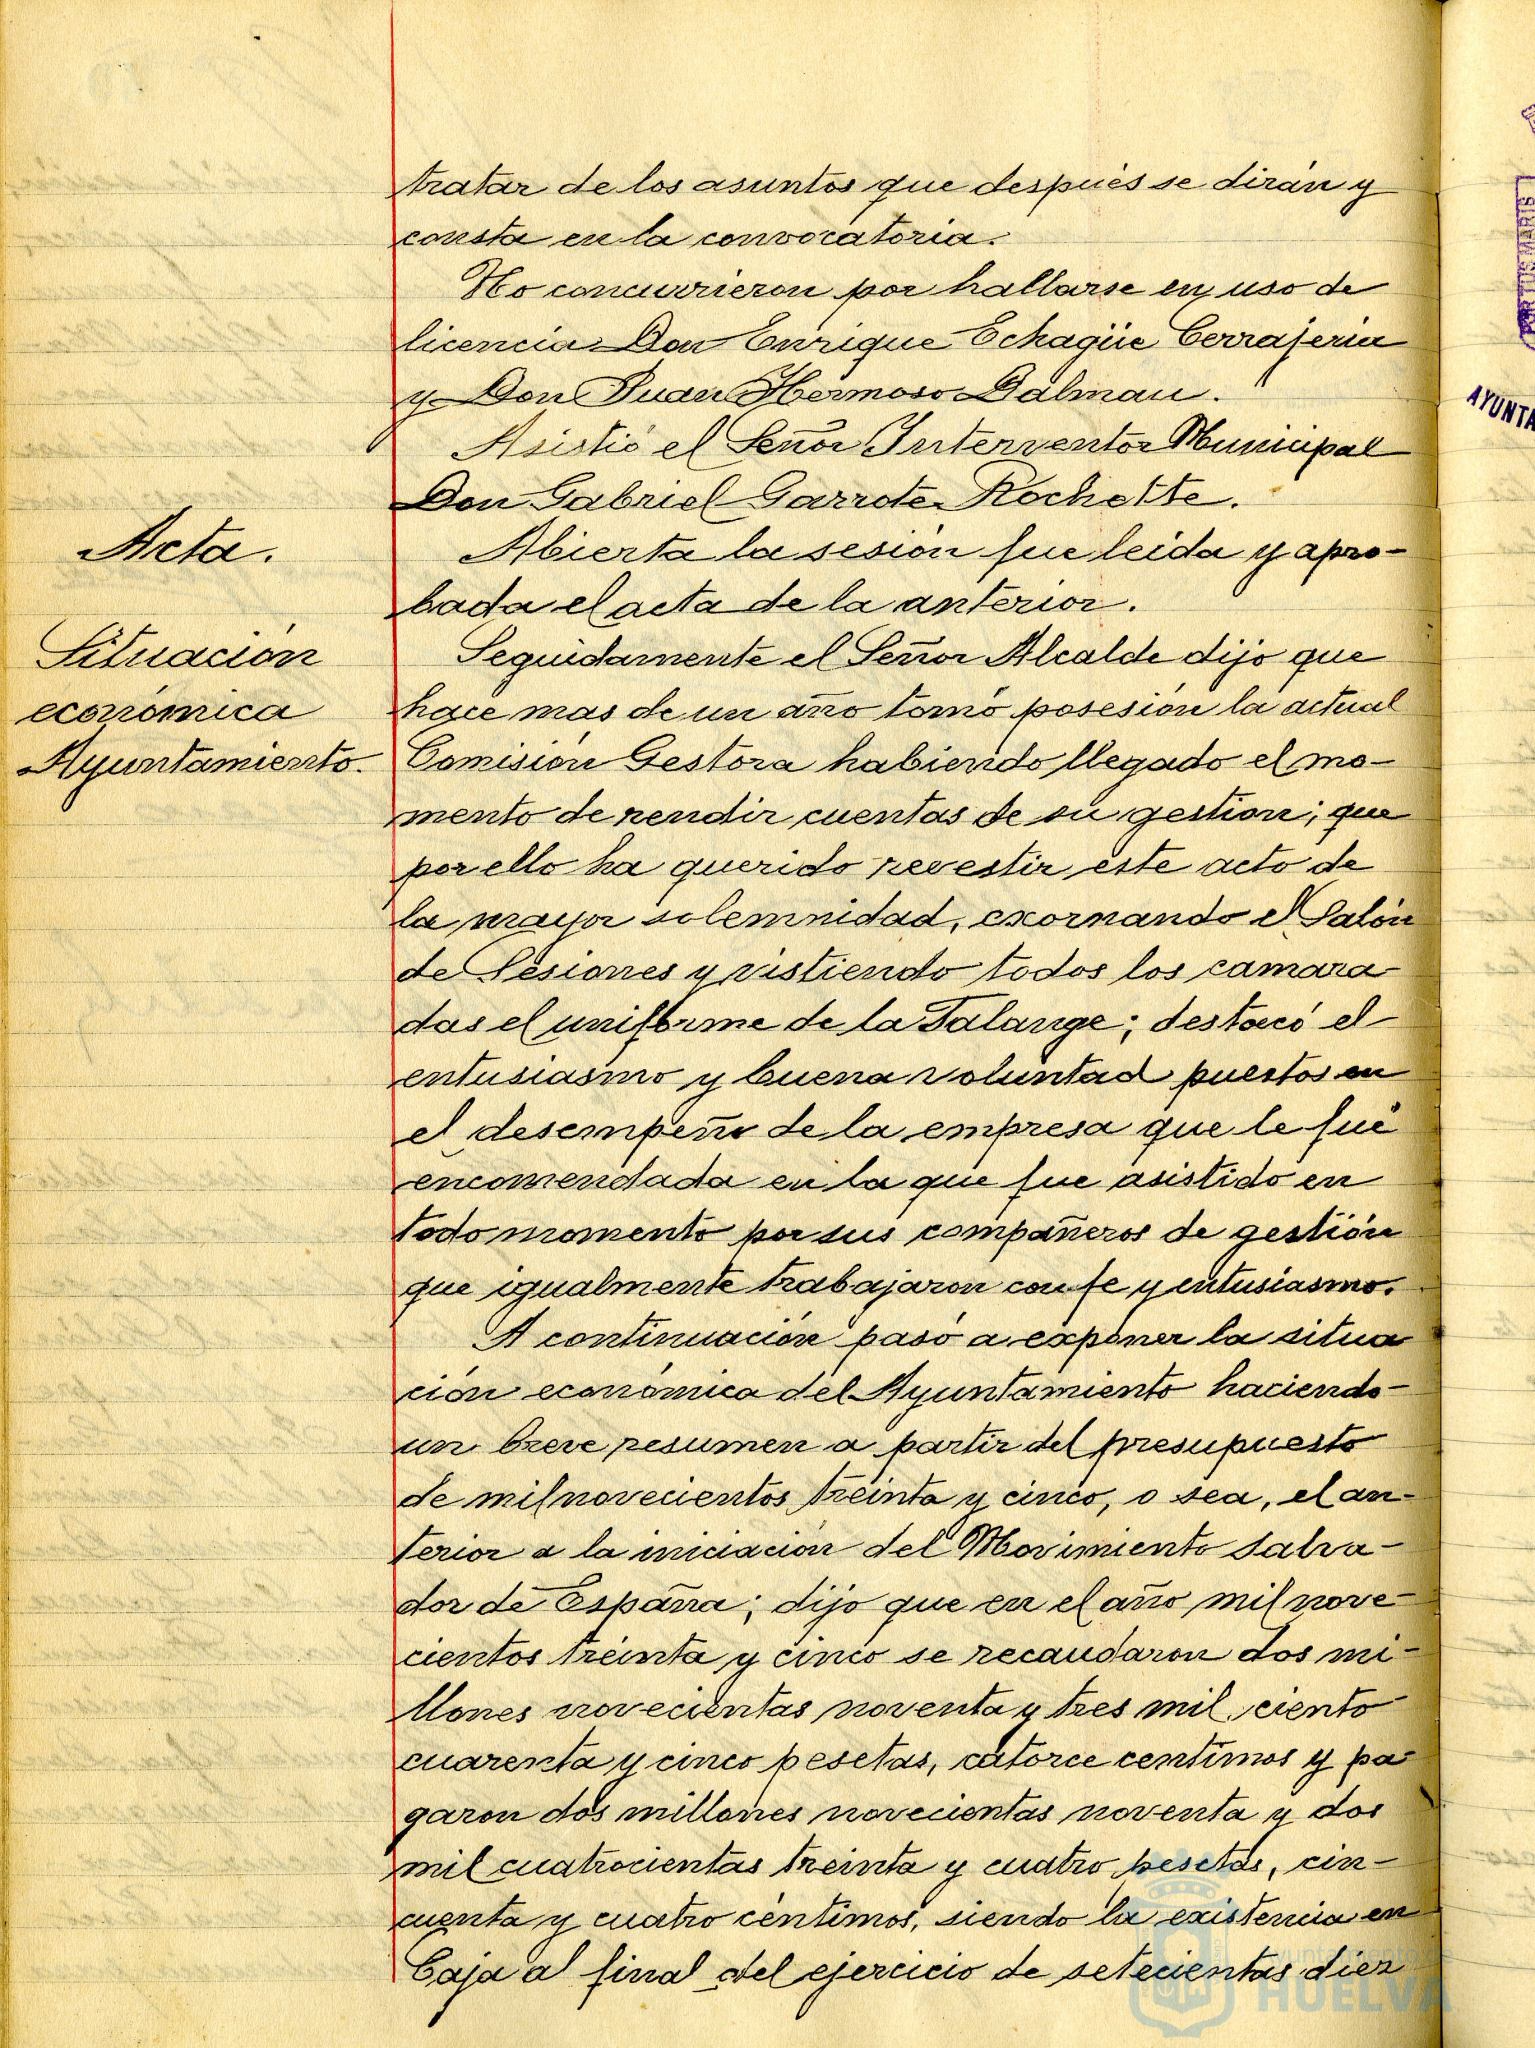 tratar de los asuntos que despues se dirán y
consta en la convocatoria.
No concurrieron por hallarse en uso de
licencia Don Enrique Echagüe Cerrajeria
y Don Juan Hermoso Dalmau.
Asistió el Señor Interventor Municipal
Don Gabriel Garrote Rochette.
Acta.
Abierta la sesión fue leida y apro-
bada el acta de la anterior.
Situación
económica
Ayuntamiento.
Seguidamente el Señor Alcalde dijo que
hace mas de un año tomó posesión la actual
Comisión Gestora habiendo llegado el mo-
mento de rendir cuentas de su gestion; que
por ello ha querido revestir este acto de
la mayor solemnidad, exornando el Salón
de Sesiones y vistiendo todos los camara
das el uniforme de la Falange; destacó el
entusiasmo y buena voluntad puestos en
el desempeño de la empresa que le fué
encomendada en la que fue asistido en
todo momento por sus compañeros de gestión
que igualmente trabajaron con fe y entusiasmo.
A continuación pasó a exponer la situa
ción económica del Ayuntamiento haciendo
un breve resumen a partir del presupuesto
de mil novecientos treinta y cinco, o sea, el an-
terior a la iniciación del Movimiento Salva-
dor de España; dijo que en el año mil nove-
cientos treinta y cinco se recaudaron dos mi-
llones novecientas noventa y tres mil ciento
cuarenta y cinco pesetas, catorce centimos y pa-
garon dos millones novecientas noventa y dos
mil cuatrocientas treinta y cuatro pesetas, cin-
cuenta y cuatro céntimos, siendo la existencia en
Caja al final del ejercicio de setecientas diez
PORTUS MARIS
AYUNTA
ayuntamiento
HUELVA